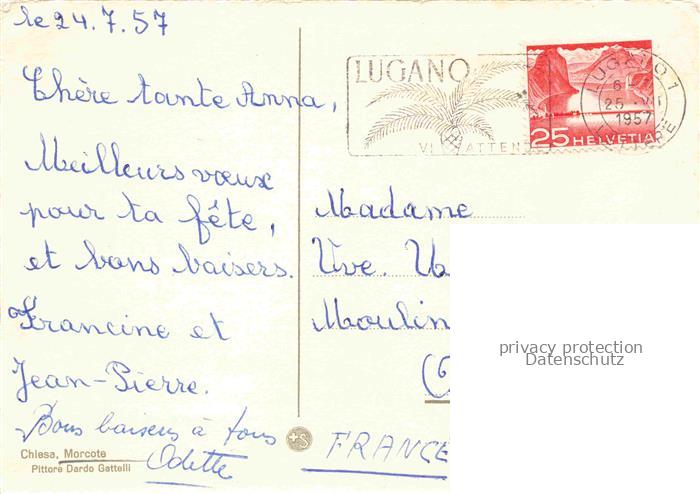 le 24.7.57
Chère tante Anna,
Meilleurs vœux
pour ta fête,
et bons baisers.
Francine et
Jean-Pierre.
Bons baisers à tous
Odette
Chiesa, Morcote
Pittore Dardo Gattelli
LUGANO
VI ATTENDE
LUGANO 1
25
1957
25 HELVETIA
Madame
Vve.
Moulin
FRANCE
privacy protection
Datenschutz